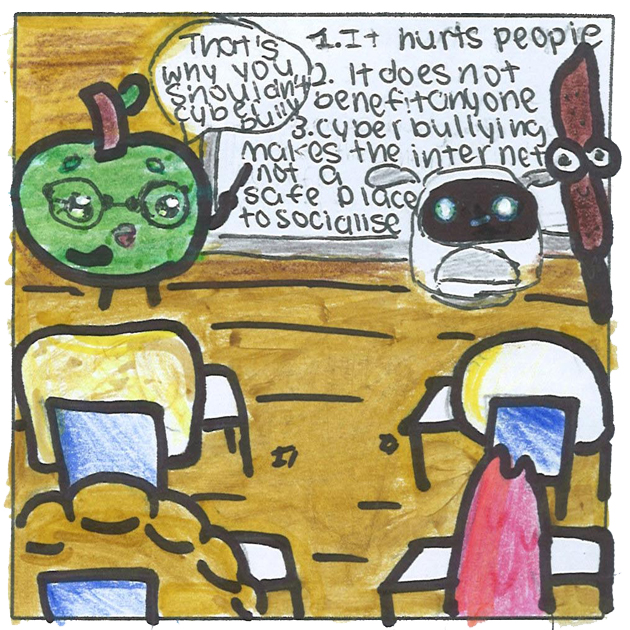 That's
why you
shouldn't
cyber bully
1.It hurts people
2. It does not
benefit anyone
3.cyber bullying
makes the internet
not a
safe place
to socialise